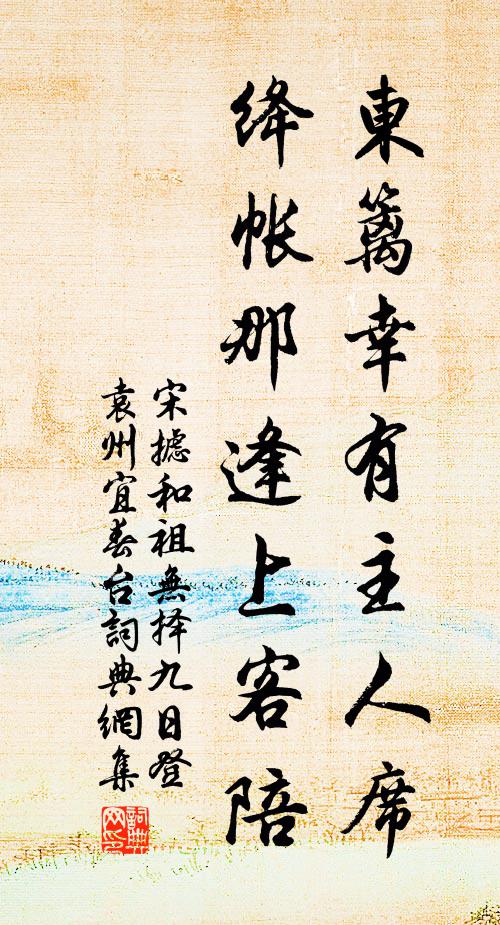 東籬幸有主人席
绛帐那逢上客陪
宋摅和祖無择九日登
袁州宜春台詞典網集
詞典
网印